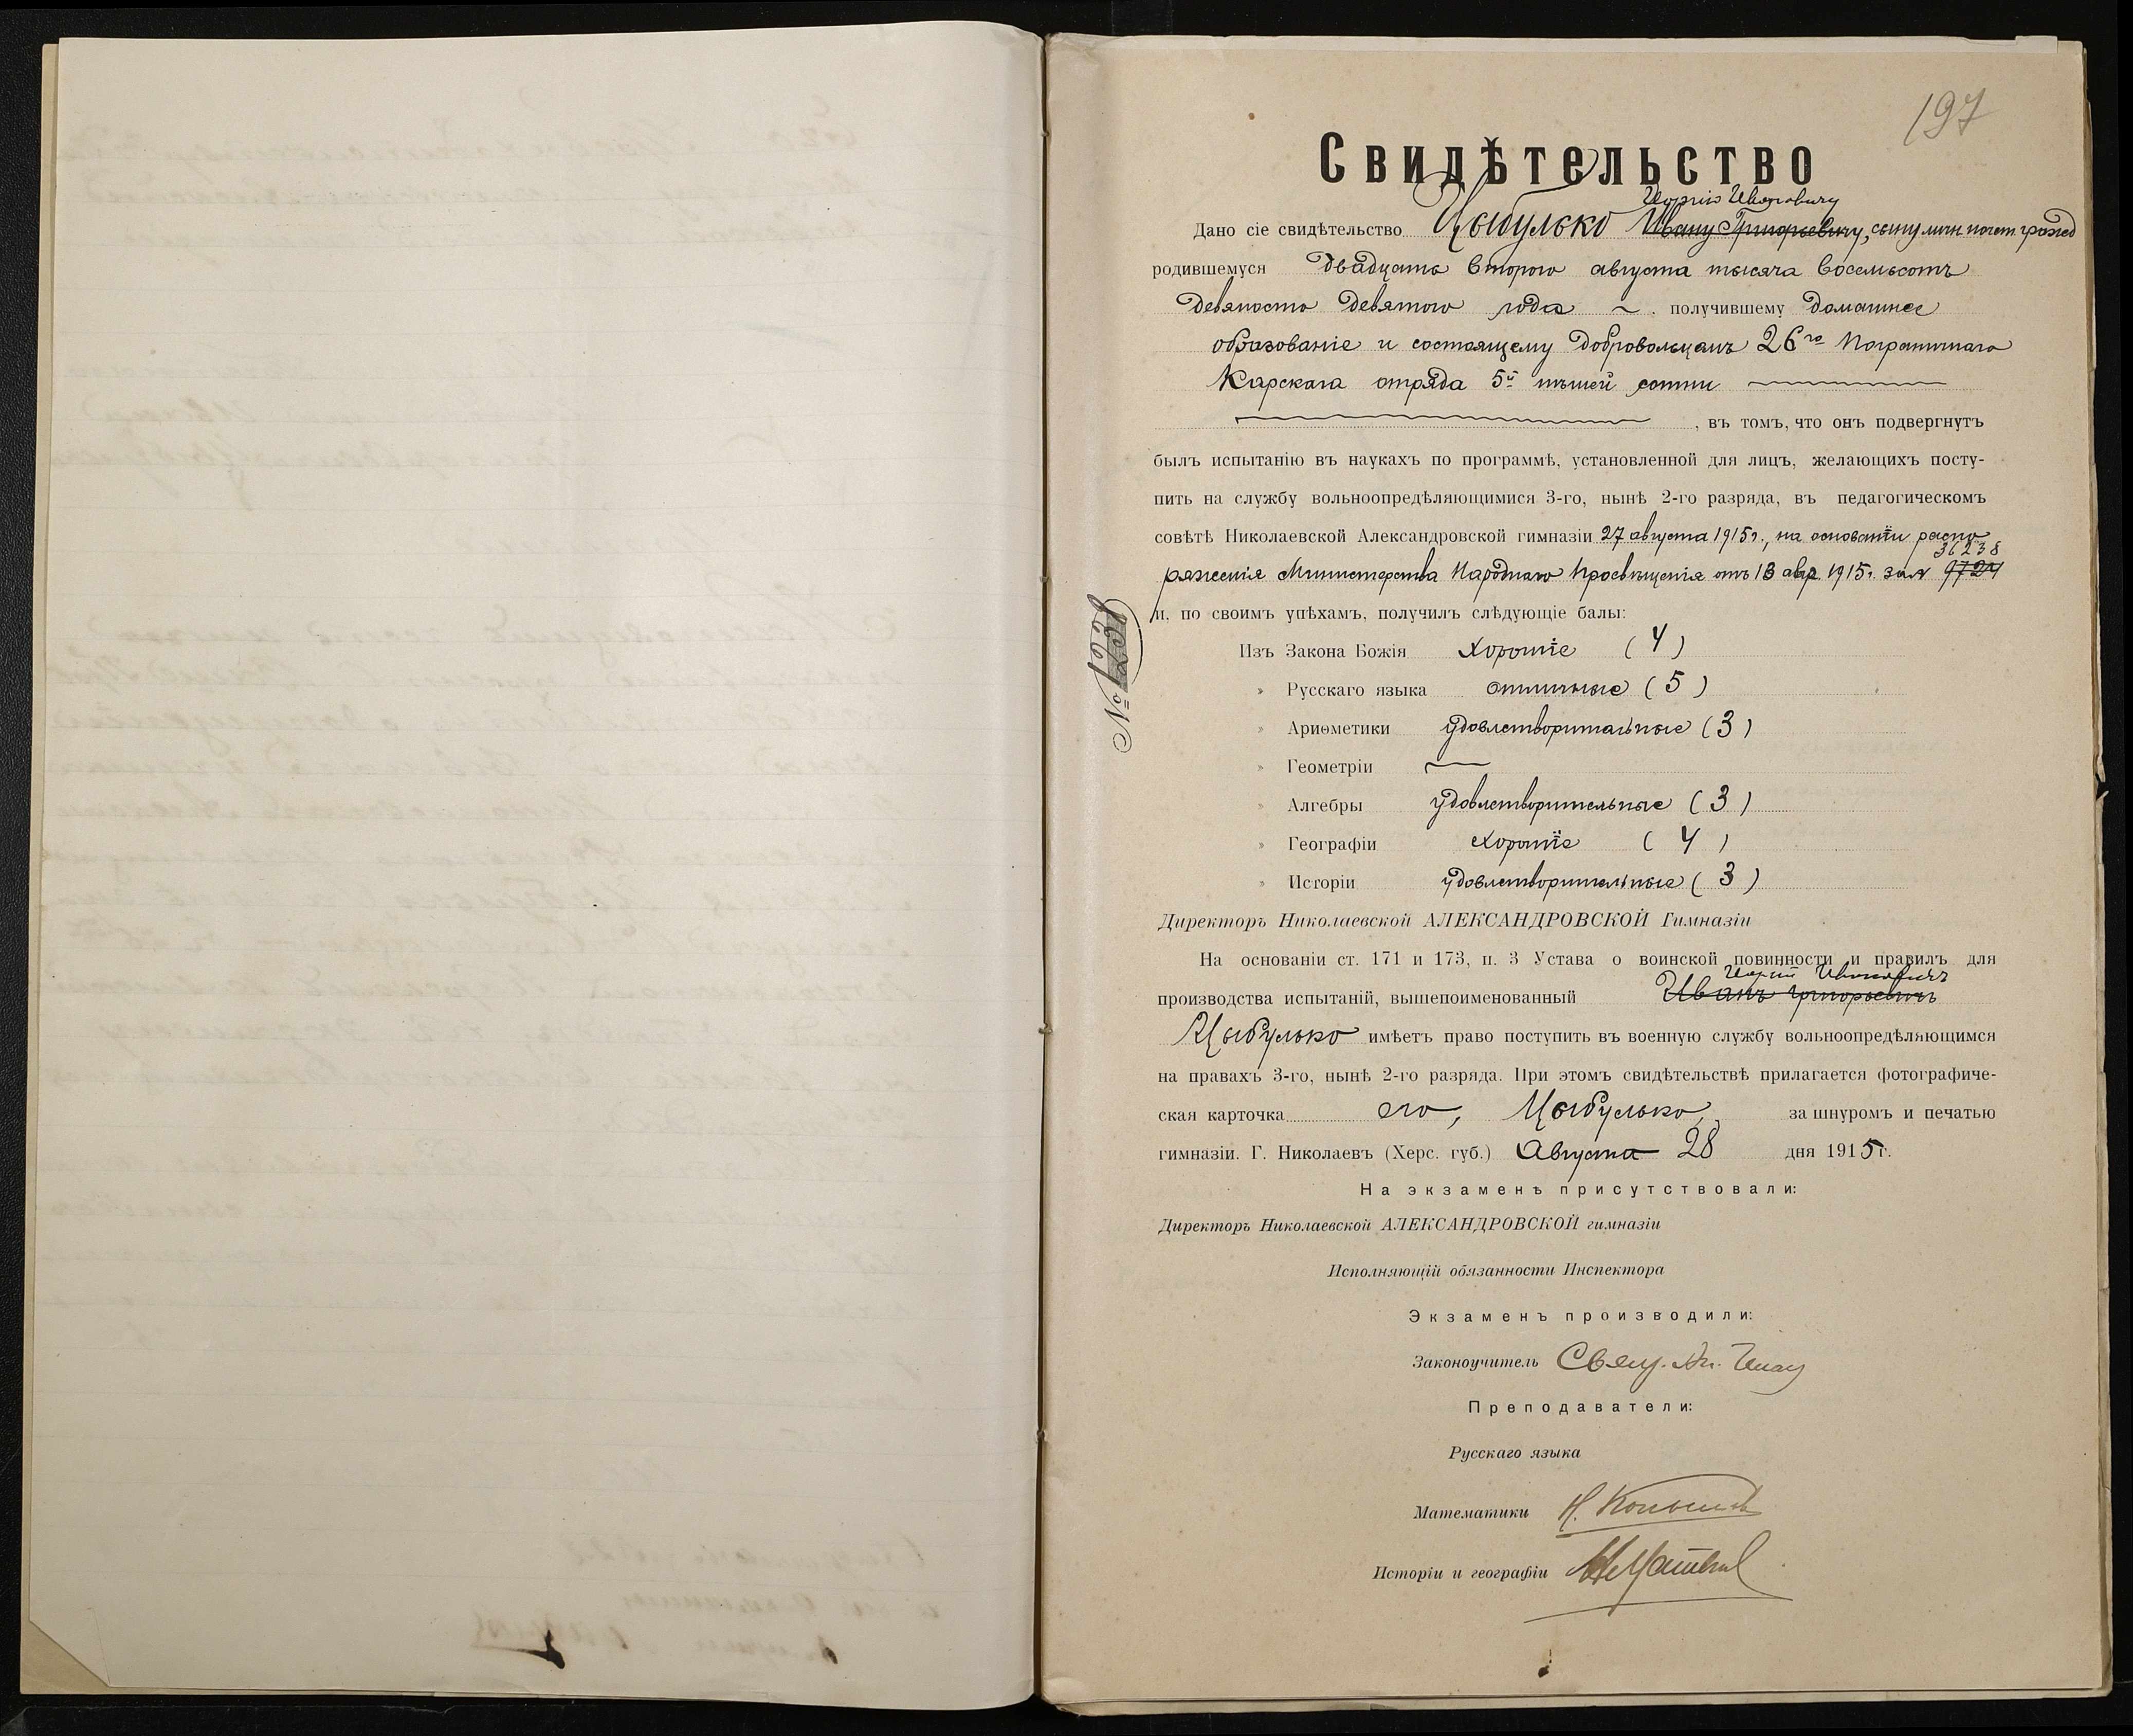 197
Свидѣтельство
Георгію Ивановичу
Дано сіе свидѣтельство Цыбулько Ивану Григорьевичу, сыну личн. почетн. гражд
родившемуся двадцать второго августа тысяча восемьсотъ
девяносто девятого года ~ получившему домашнее
образованіе и состоящему добровольцемъ 26го Пограничнаго
Карскаго отряда 5й пѣшей сотни
, въ томъ, что онъ подвергнутъ
былъ испытанію въ наукахъ по программѣ, установленной для лицъ, желающихъ посту-
пить на службу вольноопредѣляющимися 3-го, нынѣ 2-го разряда, въ педагогическомъ
совѣтѣ Николаевской Александровской гимназіи 27 августа 1915г., на основаніи распо
36238
ряженія Министерства Народнаго Просвѣщенія отъ 13 авг. 1915г. за № 9724
и, по своимъ успѣхамъ, получилъ слѣдующіе балы:
№ 1238
Изъ Закона Божія хорошіе (4)
» Русскаго языка отличные (5)
» Ариѳметики удовлетворительные (3)
» Геометріи —
» Алгебры удовлетворительные (3)
» Географіи хорошіе (4)
» Исторіи удовлетворительные (3)
Директоръ Николаевской АЛЕКСАНДРОВСКОЙ Гимназіи
На основаніи ст. 171 и 173, п. 3 Устава о воинской повинности и правилъ для
Георгій Ивановичъ
производства испытаній, вышепоименованный Иванъ Григорьевичъ
Цыбулько имѣетъ право поступить въ военную службу вольноопредѣляющимся
на правахъ 3-го, нынѣ 2-го разряда. При этомъ свидѣтельствѣ прилагается фотографиче-
ская карточка его, Цыбулько, за шнуромъ и печатью
гимназіи. Г. Николаевъ (Херс. губ.) Августа 28 дня 1915г.
На экзаменѣ присутствовали:
Директоръ Николаевской АЛЕКСАНДРОВСКОЙ гимназіи
Исполняющій обязанности Инспектора
Экзаменъ производили:
Законоучитель Свящ.
Преподаватели:
Русскаго языка
Математики
Исторіи и географіи